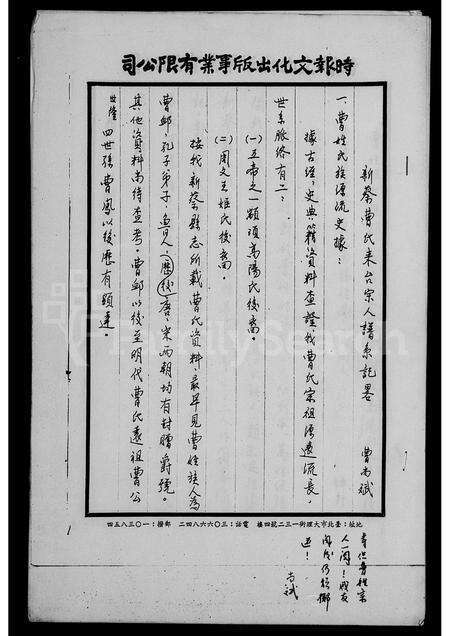 時報文化出版事業有限公司
新蔡曹氏來台宗人譜系記畧 曹尚斌
一、曹姓氏族源流史據：
據古經、史典籍資料查證，我曹氏宗祖源遠流長，
世系脈絡有二：
(一)五帝之一顓頊高陽氏後裔。
(二)周文王姬氏後裔。
按我新蔡縣志所載曹氏資料，最早見曹姓族人為
曹卹，孔子弟子，魯人，歷後唐，宋兩朝均有封贈爵號。
其他資料尚待查考。曹卹以後至明代曹氏遠祖曹公
世隆四世孫曹鳳以後歷有顯達。
地址：臺北市大理街一三二號四樓 電話：三〇六六八四二 郵撥：一〇三八五四
尚斌